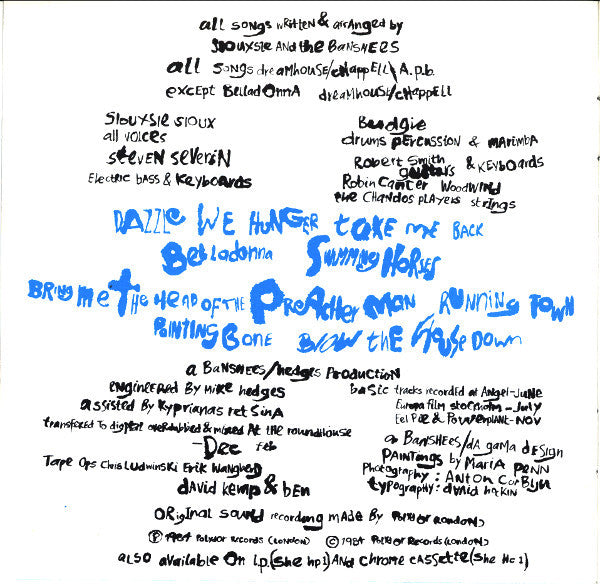 all songs written & arranged by
Siouxsie and the Banshees
all songs dreamhouse/chappell\A.p.b.
except Belladonna dreamhouse/chappell
Siouxsie Sioux
all voices
Steven Severin
Electric bass & keyboards
Budgie
drums percussion & marimba
Robert Smith
guitars & keyboards
Robin Canter woodwind
the chandos players strings
Dazzle We Hunger take me back
Belladonna Swimming Horses
Bring me the head of the Preacher man Running Town
Pointing Bone Blow the House Down
a Banshees/hedges production
engineered by mike hedges
assisted by kyprianas ret sina
transfered to digital overdubbed & mixed at the roundhouse
- Dec feb
Tape ops Chris Ludwinski Erik Wangberg
david kemp & ben
basic tracks recorded at Angel-June
Europa film stockholm - July
Eel Pie & Powerplant - Nov
a Banshees/da gama design
paintings by Maria Penn
photography: Anton Corbijn
typography: david hokin
Original sound recording made by Polydor (London)
Ⓟ 1984 Polydor Records (London) © 1984 Polydor Records (London)
also available on l.p. (she hp1) and chrome cassette (she hc1)